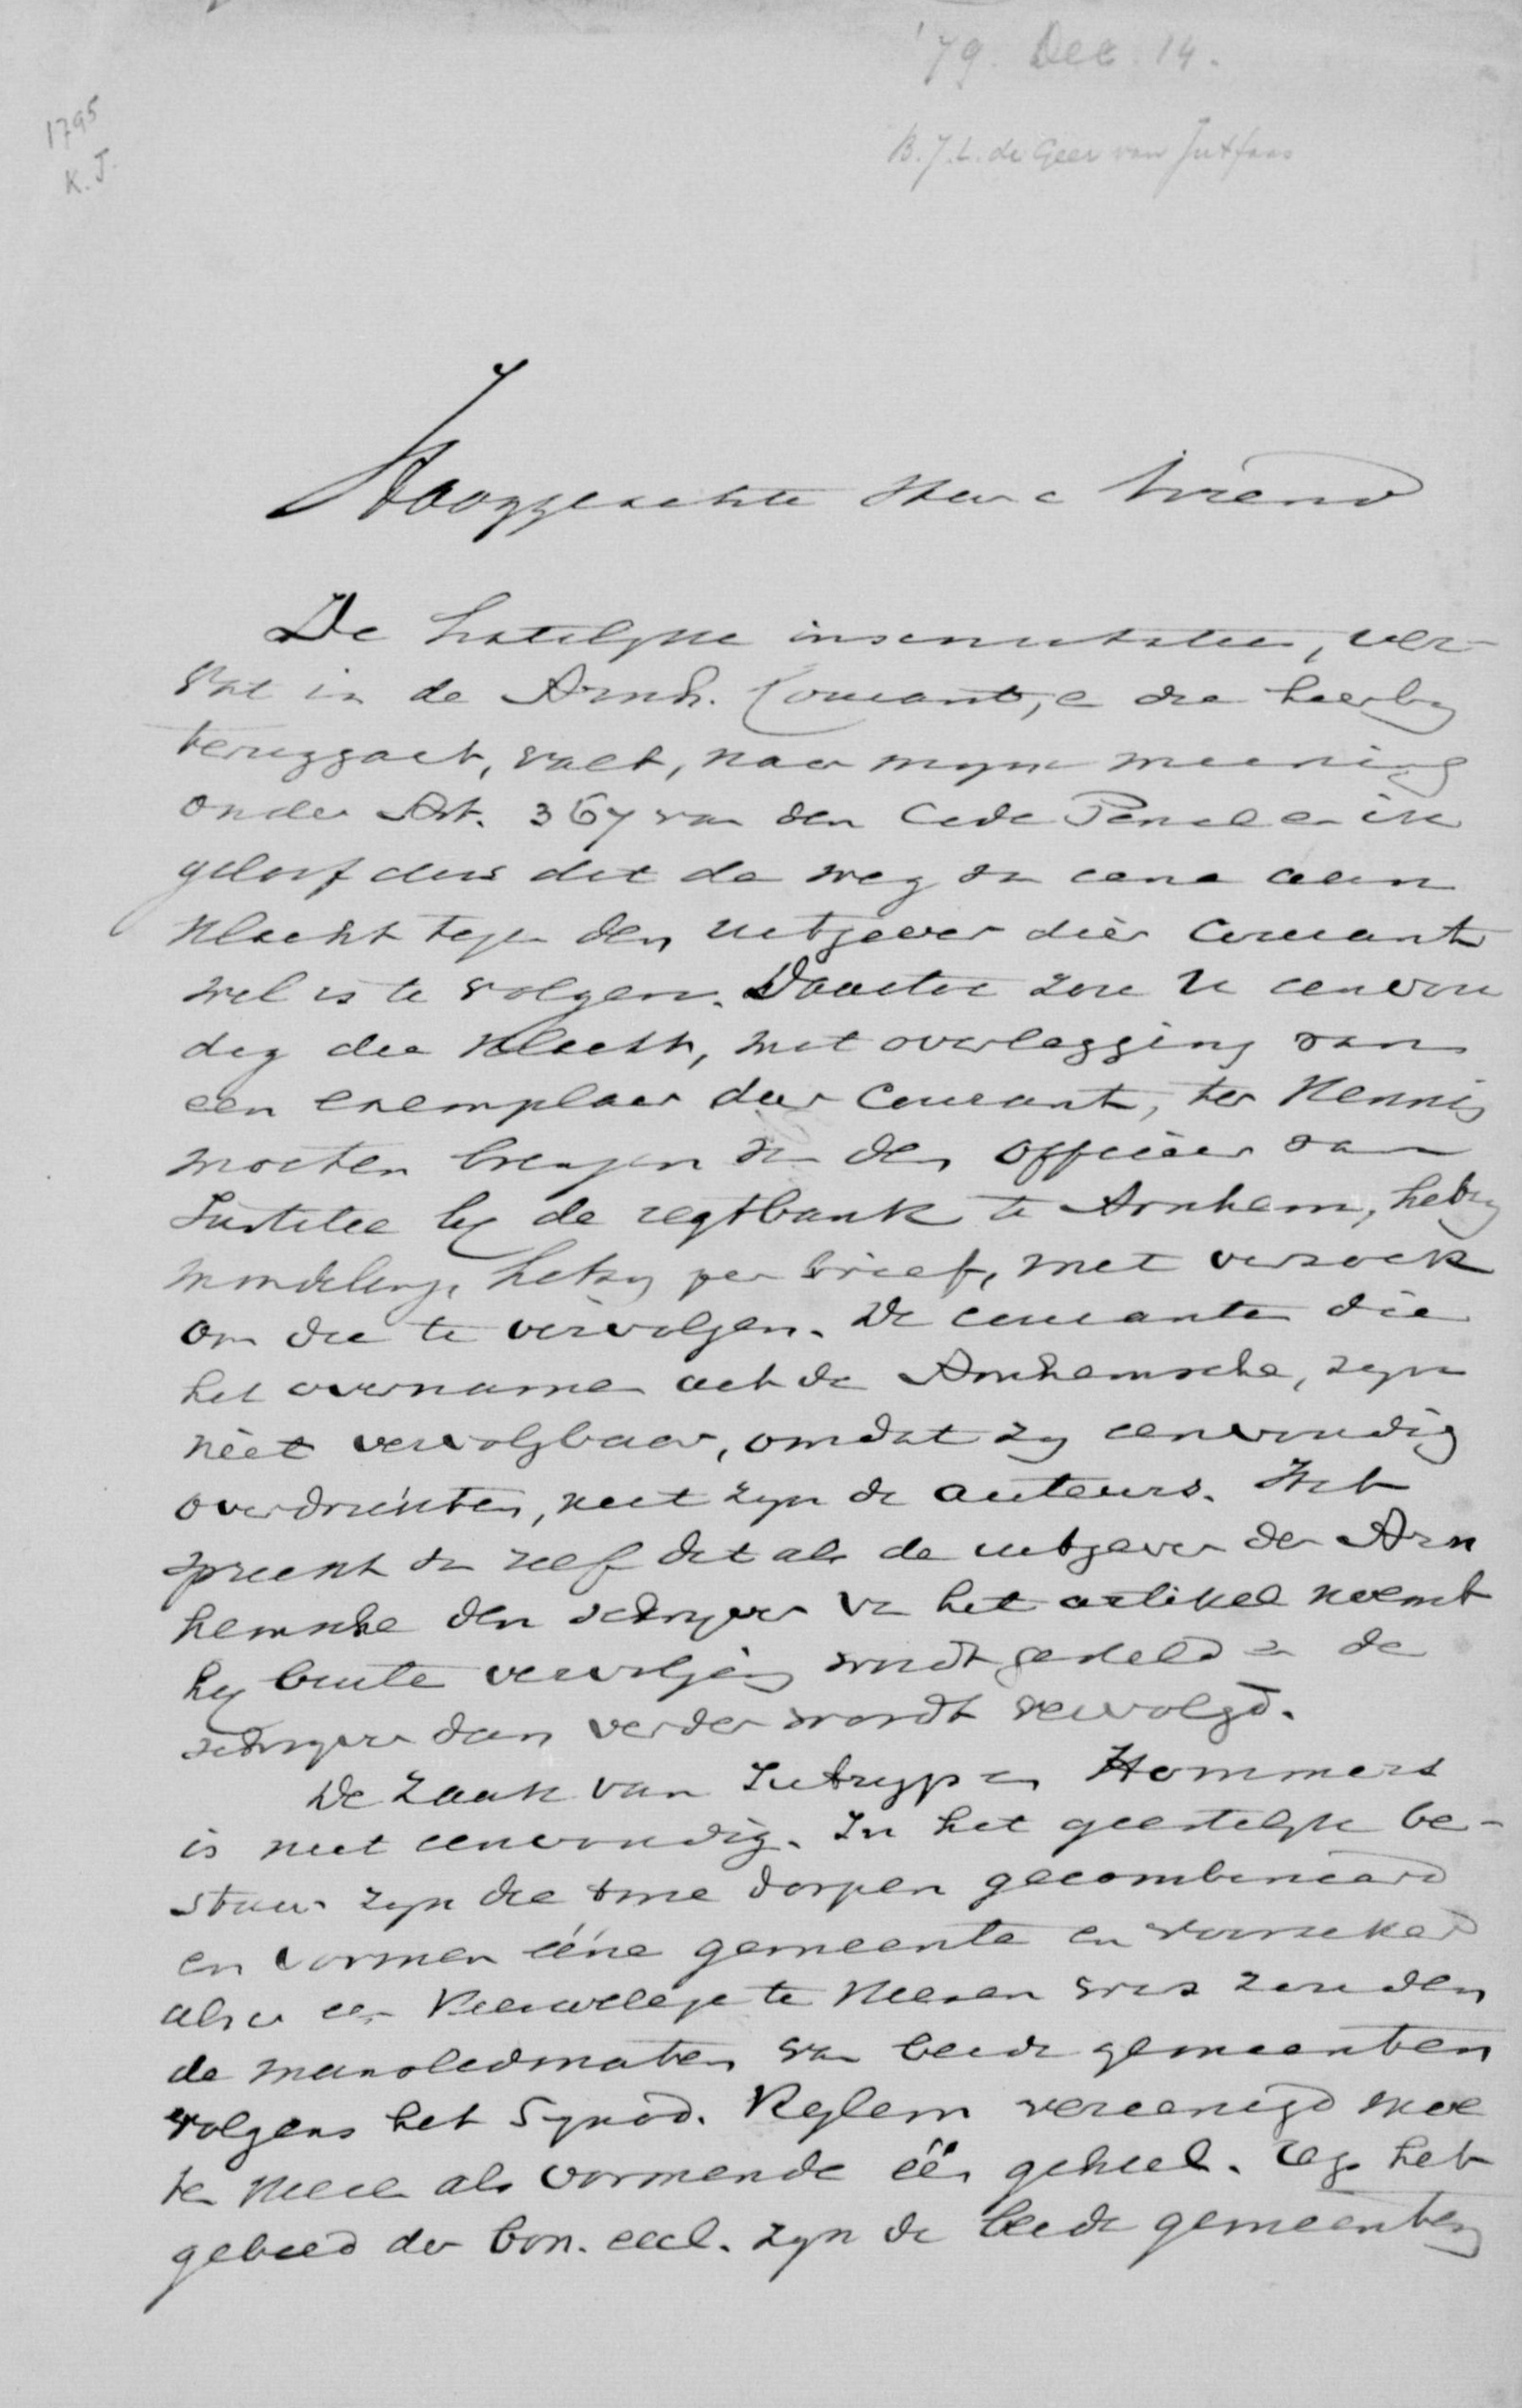 '79. Dec. 14.
1795
K. J.
B. J. L. de Geer van Jutfaas
Hooggeachte Heer e Vriend
De hatelyke insinuatie, ver-
vat in de Arnh. Courant, e die hierby
teruggaat, valt, naar myne meening
onder Art. 367 van den Code Penal en ik
geloof dus dat de weg van eene aan
klacht tegen den uitgever dier Courant
wel is te volgen. Daartoe zou U eenvou
dig die klacht, met overlegging van
een exemplaar der Courant, ter kennis
moeten brengen van den officier van
Justitie by de regtbank te Arnhem, hetzy
mondeling, hetzy per brief, met verzoek
om die te vervolgen. De couranten die
het overnamen uit de Arnhemsche, zyn
niet vervolgbaar, omdat zy eenvoudig
overdrukten, niet zyn de auteurs. Het
spreekt van zelf dat als de uitgever der Arn
hemsche den schryver van het artikel noemt
hy buiten vervolging wordt gesteld en de
schryver dan verder wordt vervolgd.
De zaak van Lutryp en Hommerts
is niet eenvoudig. In het geestelyk be-
stuur zyn die twee dorpen gecombineerd
en vormen ééne gemeente en
als er een te kiezen was zouden
de manslidmaten van beide gemeenten
volgens het Synod. Reglem vereenigd moe
ten kiezen als vormende één geheel. Op het
gebied der bon. eccl. zyn de beide gemeenten